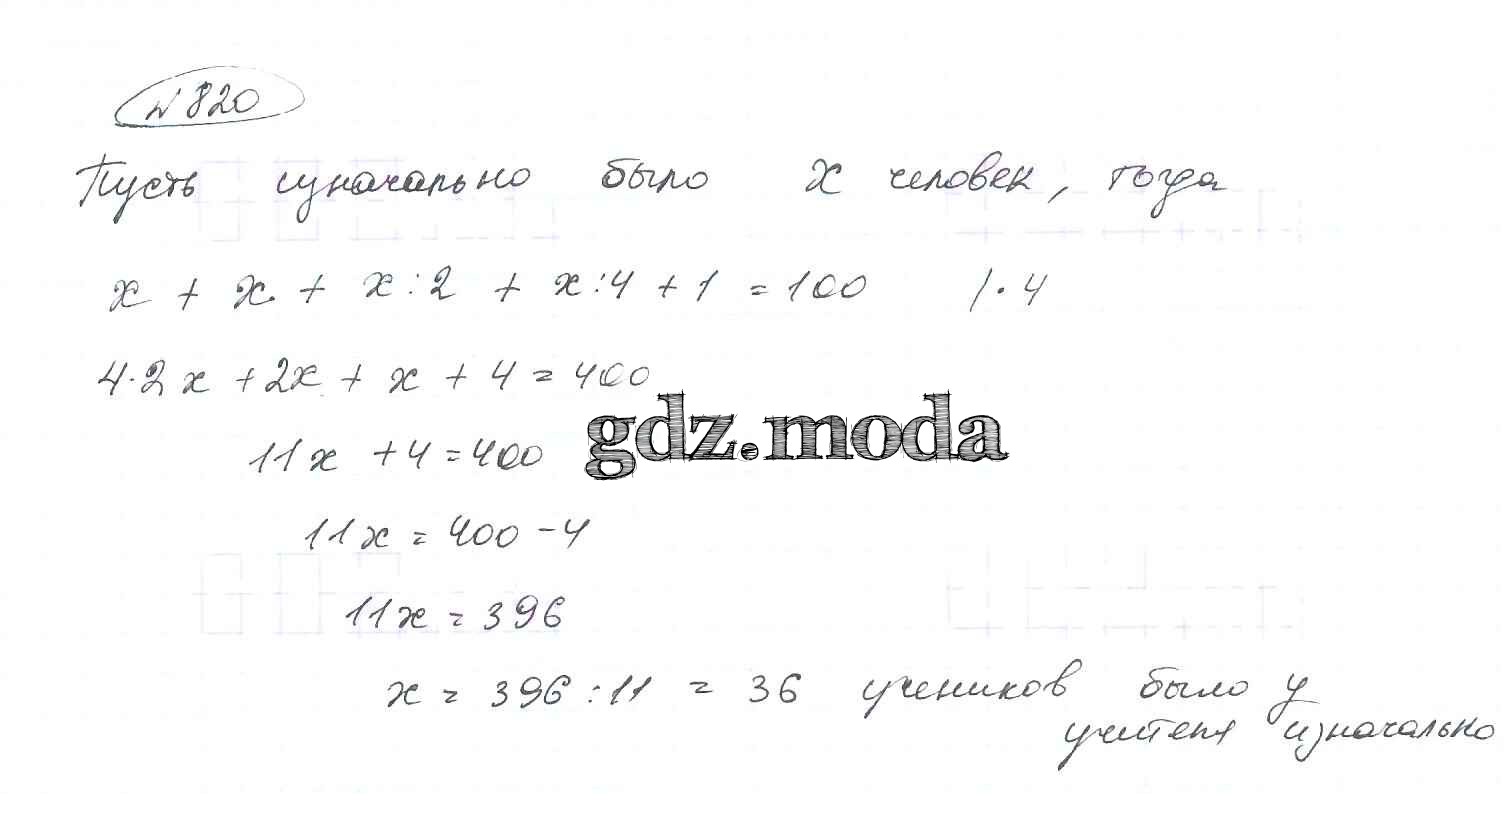 № 820
Пусть изначально было x человек, тогда
x + x + x : 2 + x : 4 + 1 = 100 | · 4
4 · 2x + 2x + x + 4 = 400
gdz.moda
11x + 4 = 400
11x = 400 - 4
11x = 396
x = 396 : 11 = 36 учеников было у
учителя изначально